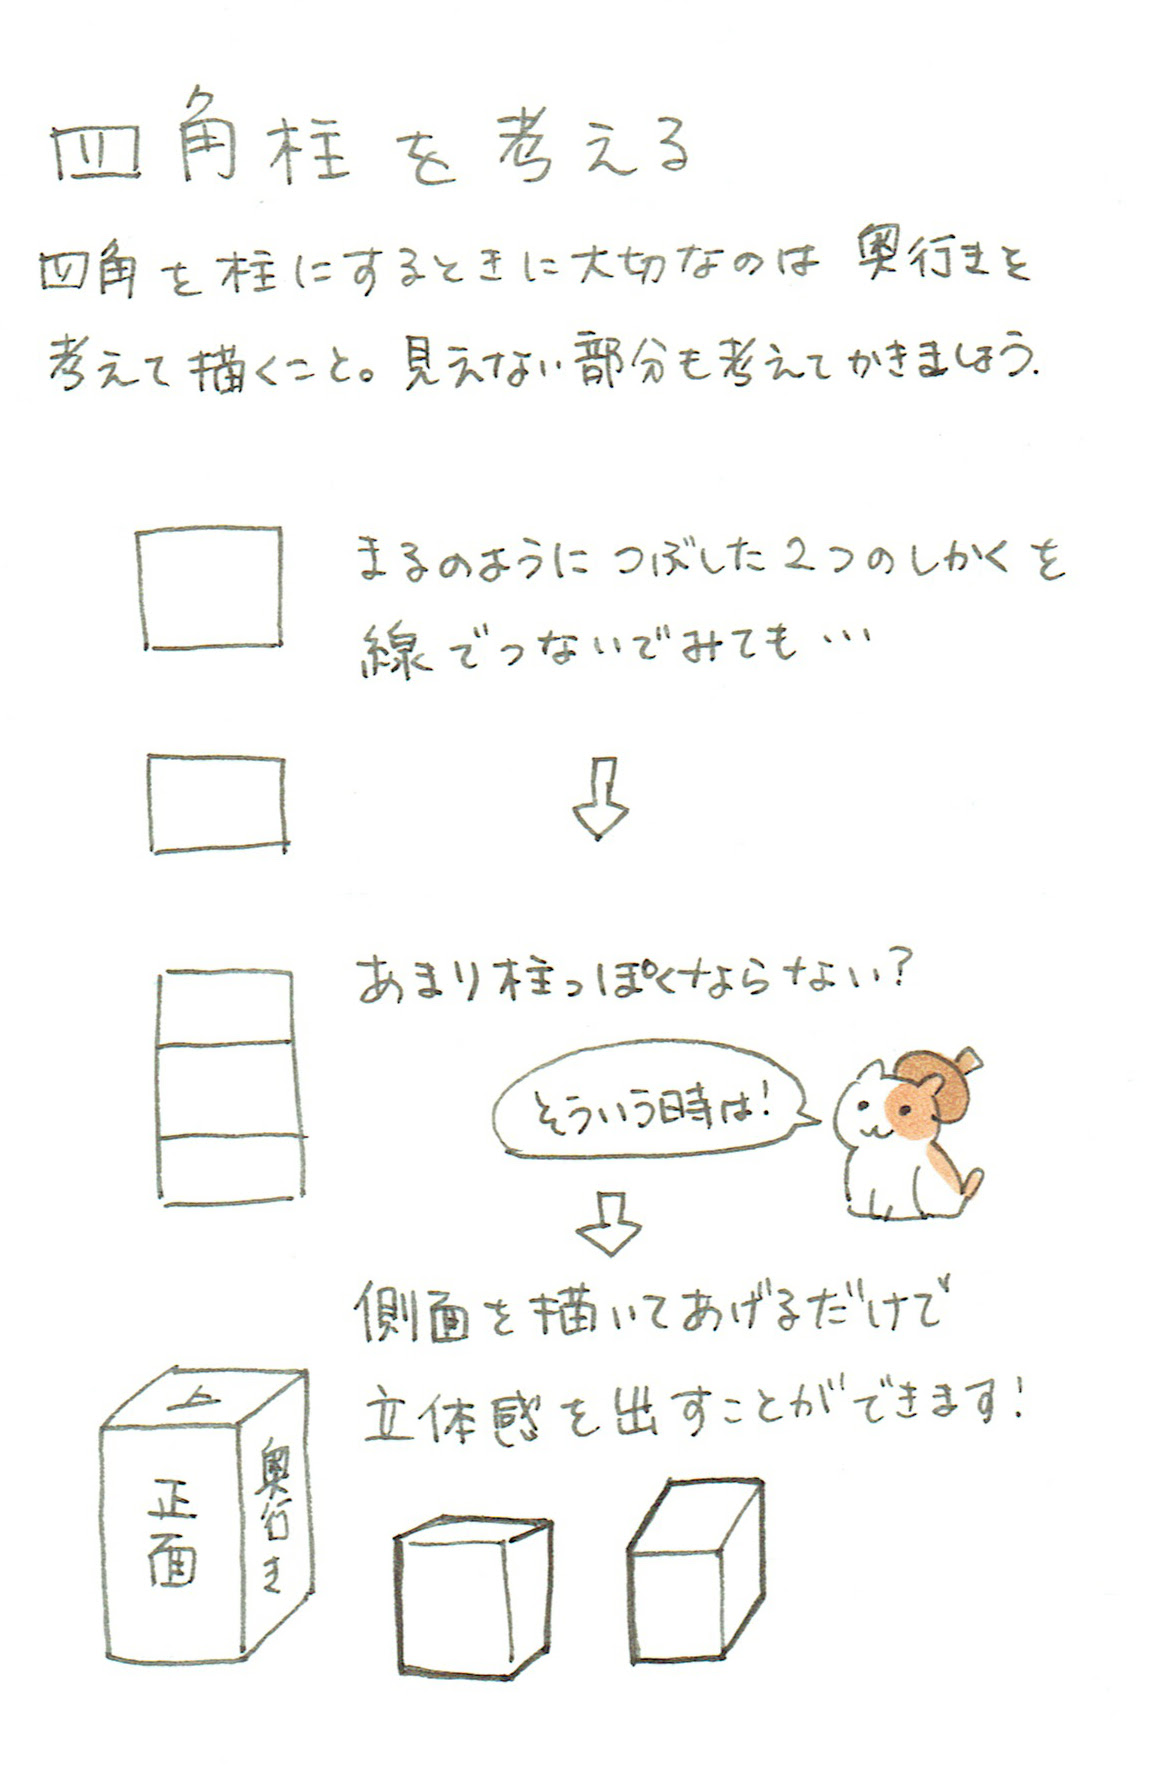 四角柱を考える
四角を柱にするときに大切なのは 奥行きを
考えて描くこと。見えない部分も考えてかきましょう.
まるのように つぶした2つのしかくを
線でつないでみても…
あまり柱っぽくならない?
そういう時は!
側面を描いてあげるだけで
立体感を出すことができます!
上
正面
奥行き